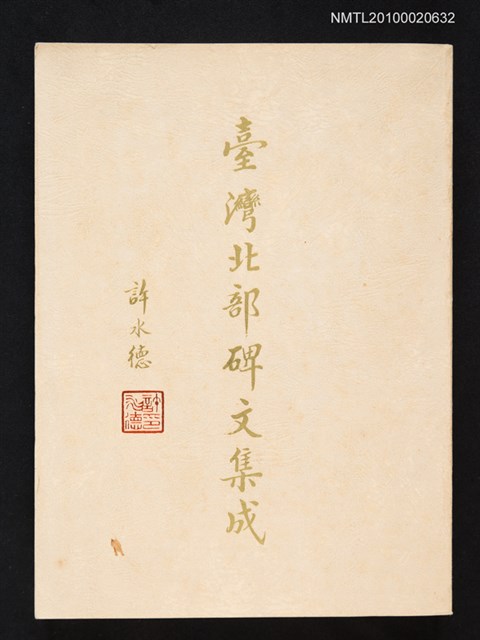 NMTL20100020632
臺灣北部碑文集成
許水德
許水德印